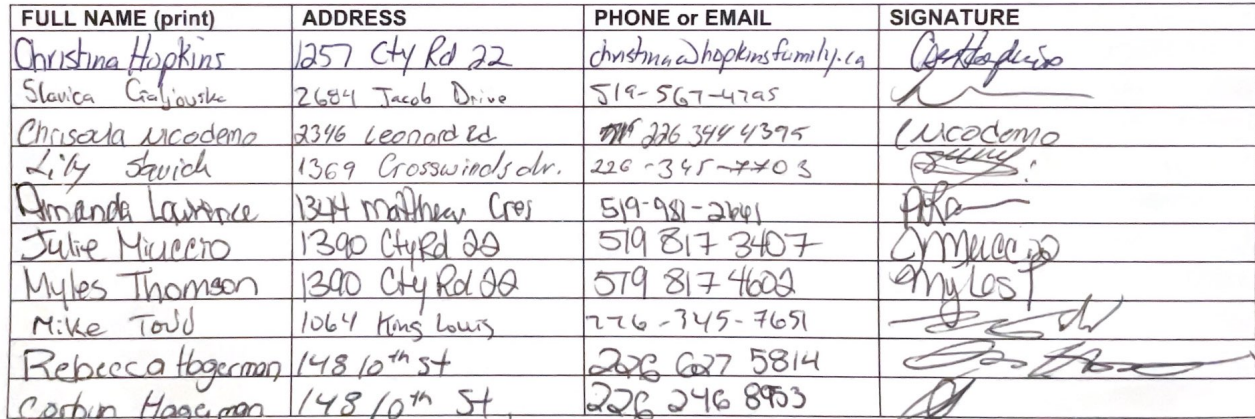 FULL NAME (print) ADDRESS PHONE or EMAIL SIGNATURE
Christina Hopkins 1257 Cty Rd 22 christina@hopkinsfamily.ca
Slavica 2684 Jacob Drive 519-567-4795
Chrisoula Nicodemo 2346 Leonard Rd 226 344 4395 Nicodemo
Lily Savich 1369 Crosswinds dr. 226-345-7703
Amanda Lawrence 1344 Matthew Cres 519-981-2641
Julie Miuccio 1390 Cty Rd 22 519 817 3407 JMiuccio
Myles Thomson 1390 Cty Rd 22 519 817 4602 Myles T
Mike Todd 1064 King Louis 226-345-7651
Rebecca Hagerman 148 10th St 226 627 5814
Corbin Hagerman 148 10th St. 226 246 8953